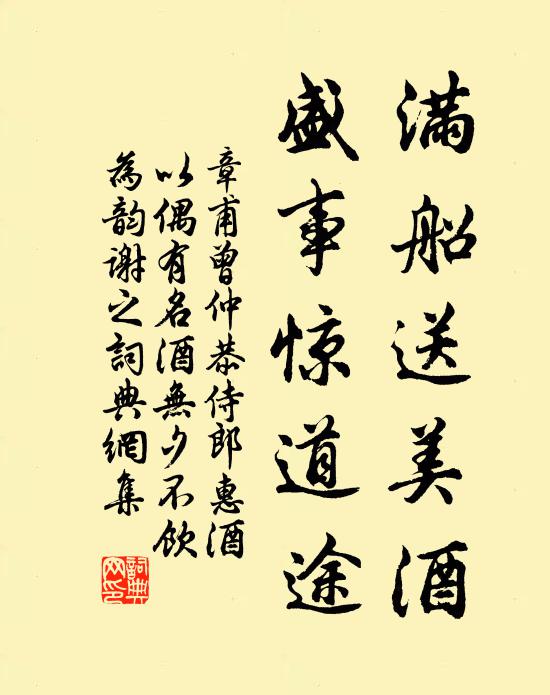 满船送美酒
盛事惊道途
章甫曾仲恭侍郎惠酒
以偶有名酒無夕不飲
為韵谢之詞典網集
詞典
网印